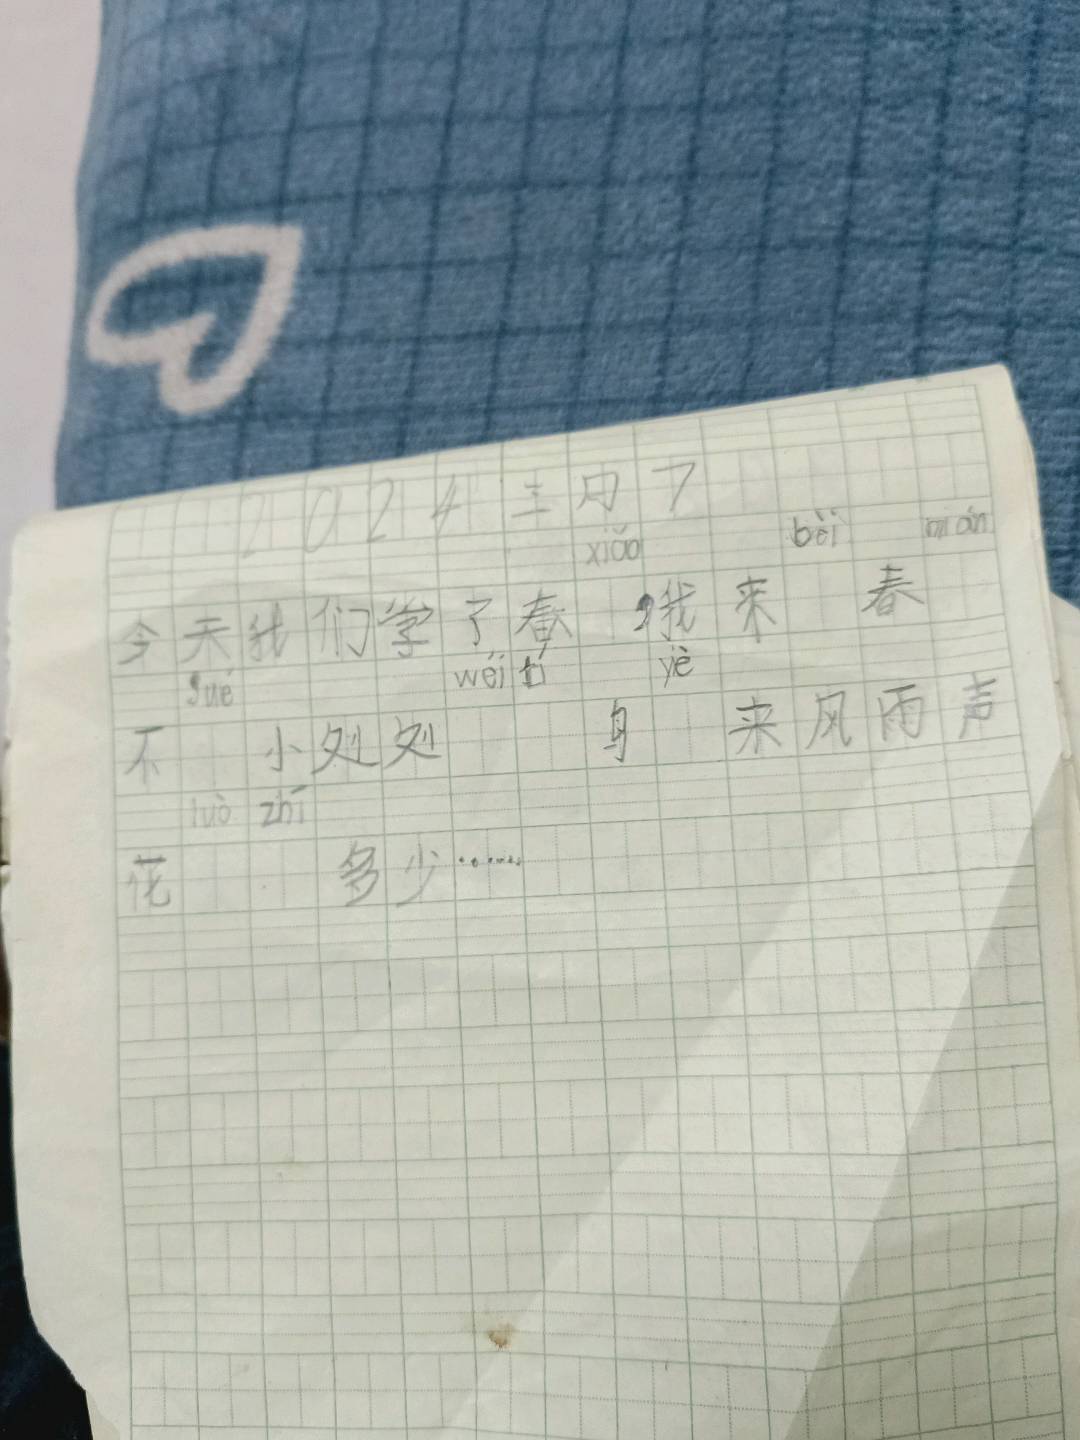 2024 三月7
xiǎo bèi mián
今天我们学了春 我来 春
jué wéi tí yè
不 小处处 鸟 来风雨声
luò zhī
花 多少……